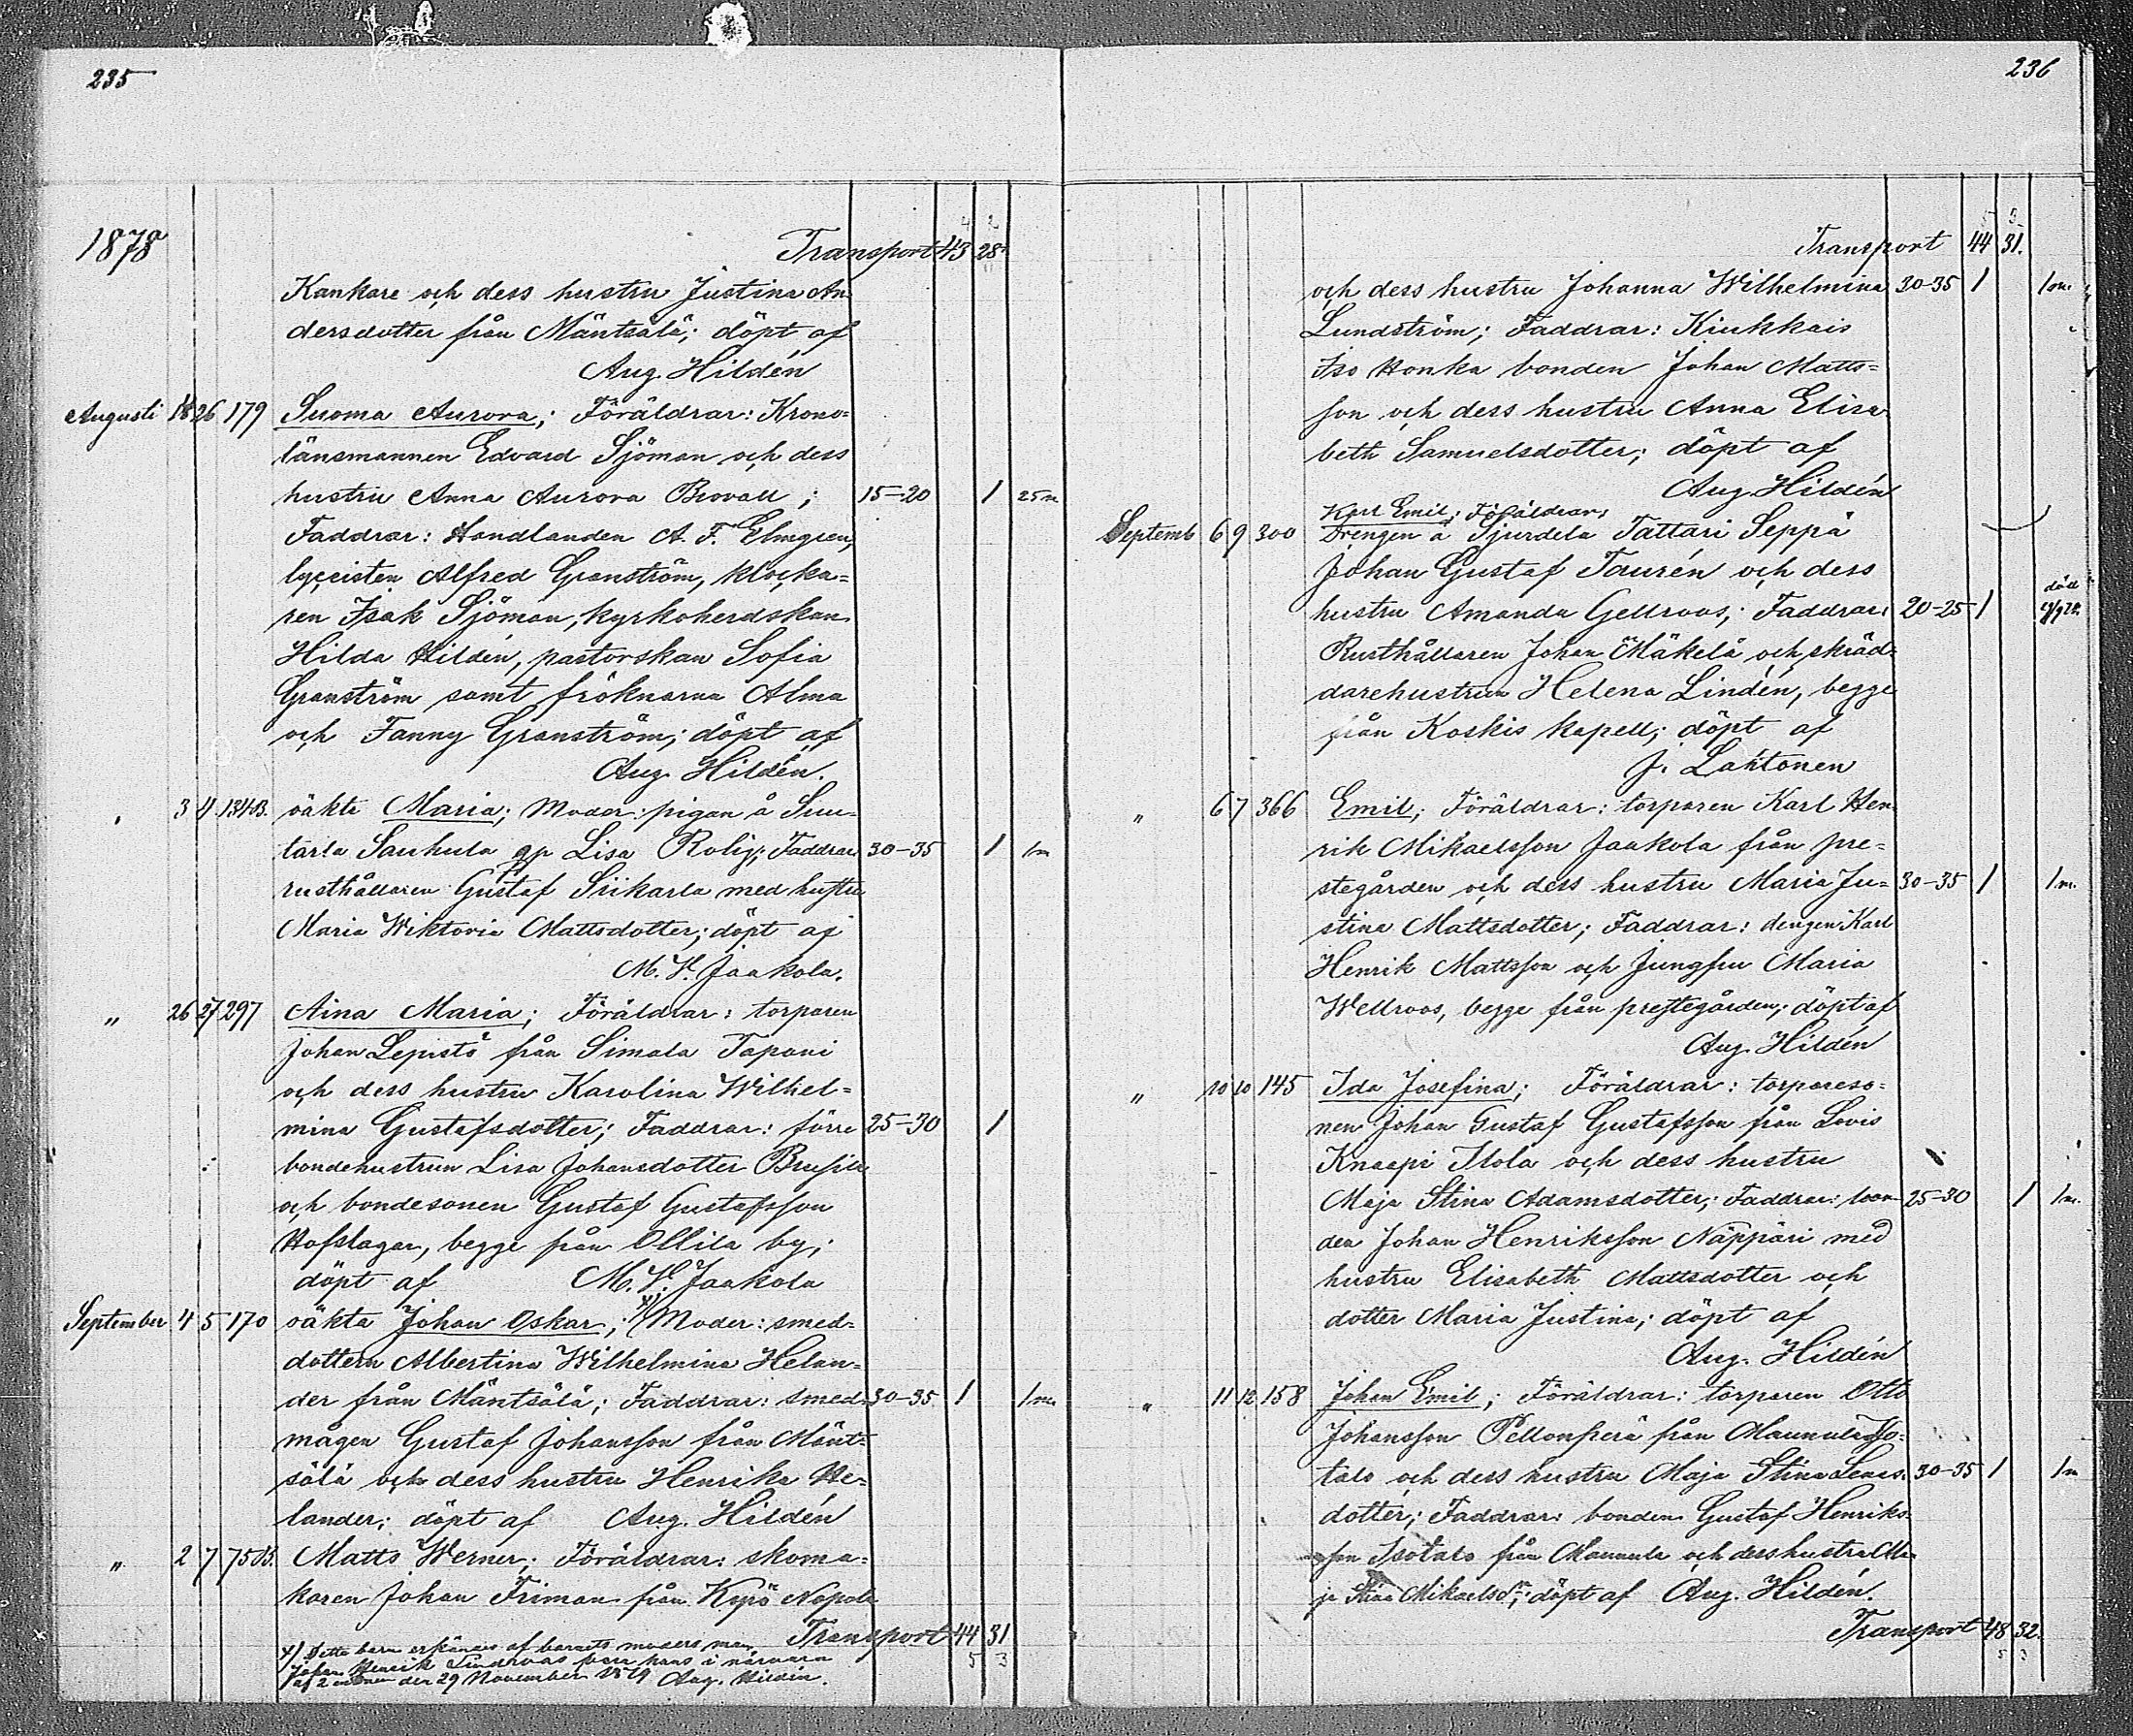 235
1878
Transport 43 28
Kankare och dess hustru Justina An
dersdotter från Mäntsälä; döpt af
Aug. Hildén
Augusti 18 26 179 Suoma Aurora; Föräldrar: Krono-
länsmannen Edvard Sjöman och dess
hustru Anna Aurora Brovall; 15-20 1 25 m
Faddrar: Handlanden A. F. Elmgren,
lyceisten Alfred Granström, klocka=
ren Isak Sjöman, kyrkoherdskan
Hilda Hildén, pastorskan Sofia
Granström samt fröknarna Alma
och Fanny Granström; döpt af
Aug. Hildén.
3 4 134 oäkta Maria; Moder: pigan å
Sauhula Lisa Rolig; Faddrar 30-35 1 1m
rusthållaren Gustaf Siikarla med hustru
Maria Wiktoria Mattsdotter; döpt af
M. V. Jaakola.
" 26 27 297 Aina Maria; Föräldrar: torparen
Johan Lepistö från Simala Tapani
och dess hustru Karolina Wilhel=
mina Gustafsdotter; Faddrar: förre 25-30 1
bondehustrun Lisa Johansdotter
och bondesonen Gustaf Gustafsson
Hofslagar, begge från Ollila by;
döpt af M. V. Jaakola
September 4 5 170 oäkta Johan Oskar; x) Moder: smed=
dottern Albertina Wilhelmina Helan=
der från Mäntsälä; Faddrar: smed- 30-35 1 1m.
mågen Gustaf Johansson från Mänt=
sälä och dess hustru Henrika He=
lander; döpt af Aug. Hildén
" 2 7 75 Matts Werner; Föräldrar: skoma=
karen Johan Friman från Kyrö Napola
Transport 44 31
5 3
x) Detta barn erkännes af barnets moders man
Johan Henrik Lindroos vara hans i närvaro
af 2 den 29 November 1879 Aug. Hildén.
236
Transport 44 31.
och dess hustru Johanna Wilhelmina 30-35 1 1m.
Lundström; Faddrar: Kiukkais
Iso Honka bonden Johan Matts=
son och dess hustru Anna Elisa
beth Samuelsdotter; döpt af
Aug. Hildén
Karl Emil; Föräldrar:
Septemb 6 9 300 Drengen å Sjurdela Tattari Seppä
Johan Gustaf Taurén och dess
hustru Amanda Gellroos; Faddrar: 20-25 1 död
Rusthållaren Johan Mäkelä och skräd=
darehustrun Helena Lindén, begge
från Koskis kapell; döpt af
J. Lahtonen
" 6 7 366 Emil; Föräldrar: torparen Karl Hen
rik Mikaelsson Jaakola från pre=
stegården och dess hustru Maria Ju= 30-35 1 1m.
stina Mattsdotter; Faddrar: drengen Karl
Henrik Mattsson och Jungfru Maria
Wellroos, begge från prestegården; döpt af
Aug. Hildén
" 10 10 145 Ida Josefina; Föräldrar: torpareso=
nen Johan Gustaf Gustafsson från Lovis
Knaapi Ilola och dess hustru
Maja Stina Adamsdotter; Faddrar: bon- 25-30 1 1m.
den Johan Henriksson Näppäri med
hustru Elisabeth Mattsdotter och
dotter Maria Justina; döpt af
Aug. Hildén
" 11 12 158 Johan Emil; Föräldrar: torparen Otto
Johansson Pellonperä från Maunula Iso-
talo och dess hustru Maja Stina 30-35 1 1m
dotter; Faddrar: bonden Gustaf Henriks-
son Isotalo från Maunula och dess hustru Ma-
ja Stina Mikaelsd:r; döpt af Aug. Hildén.
Transport 48 32.
5 3